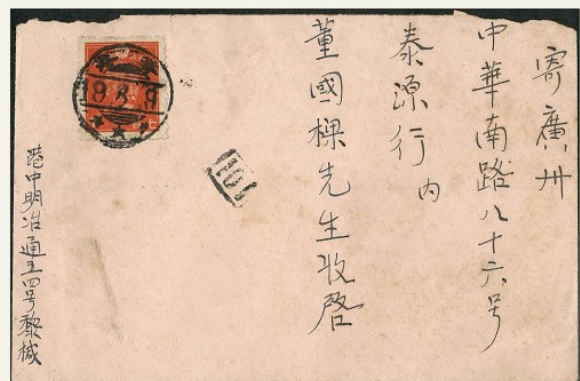 寄廣州
中華南路八十六号
泰源行内
董國樑先生收啓
港中明治通五四号黎械
19.8.9